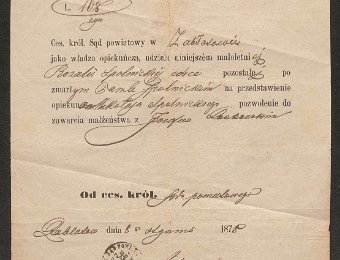 L. 108
Ces. król. Sąd powiatowy w Zabłotowie
jako władza opiekuńcza, udziela niniejszém małoletniej
Rozalii Spolnickiej córce pozostałej po
zmarłym Spolnickim na przedstawienie
opiekuna Mikołaja Spolnickiego pozwolenie do
zawarcia małżeństwa z Józefem
Od ces. król. Sądu powiatowego
Zabłotów dnia 8 187